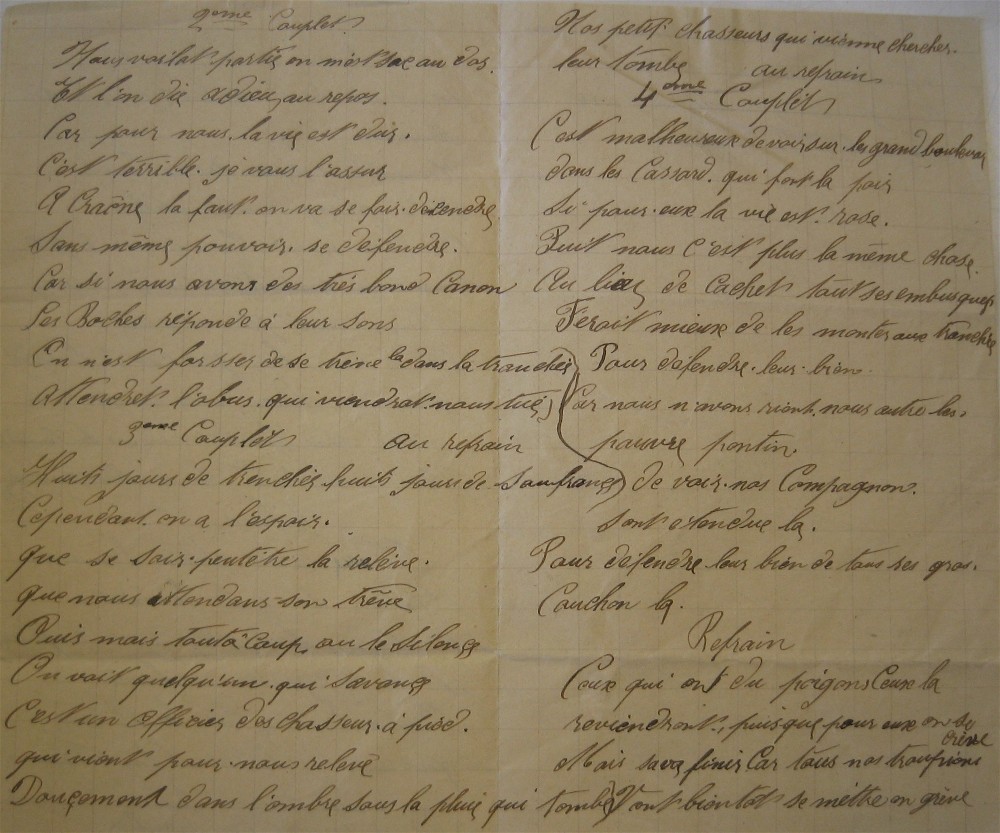 2eme Couplet
Nous voilat partie en mest sac au dos.
Et l'on die adieu au repos.
Car pour nous la vie est dur.
C'est terrible je vous l'assur
A Craône la faut on va se fair décendre
Sans même pouvoir se défendre.
Car si nous avons des trés bond Canon
Les Boches réponde à leur sons
En n'est forsser de se trène la dans la tranchée
Attendret l'obus qui viendrat nous tué
3eme Couplet au refrain
Huit jours de trenchés huit jours de soufrance
Cependant on a l'espoir.
que se soir peutêtre la relève.
que nous attendans son trêve
Puis mais toutà coup au le silence
On voit quelqu'un qui savance
C'est un officier des chasseur à pied.
qui vient pour nous relevé
Douçement dans l'ombre sous la pluie qui tombe
Nos petit chasseurs qui vienne chercher
leur tombe au refrain
4eme Couplet
C'est malheureux de voir sur les grand boulevar
dans les Cassard qui font la foir
Si pour eux la vie est rose.
Puit nous c'est plus la même chose.
Au lieu de cachet tout ses embusquer
Ferait mieux de les monter aux tranchée
Pour défendre leur bien
Car nous n'avons rient nous autre les
pauvre pontin.
de voir nos Compagnon.
sont étendue la.
Pour défendre leur bien de tous ses gros
Couchon la.
Refrain
Ceux qui ont du poignons Ceux la
reviendront, puisque pour eux on se
crève
Mais sava finir Car tous nos troupions
Vont bientot se méttre en grève